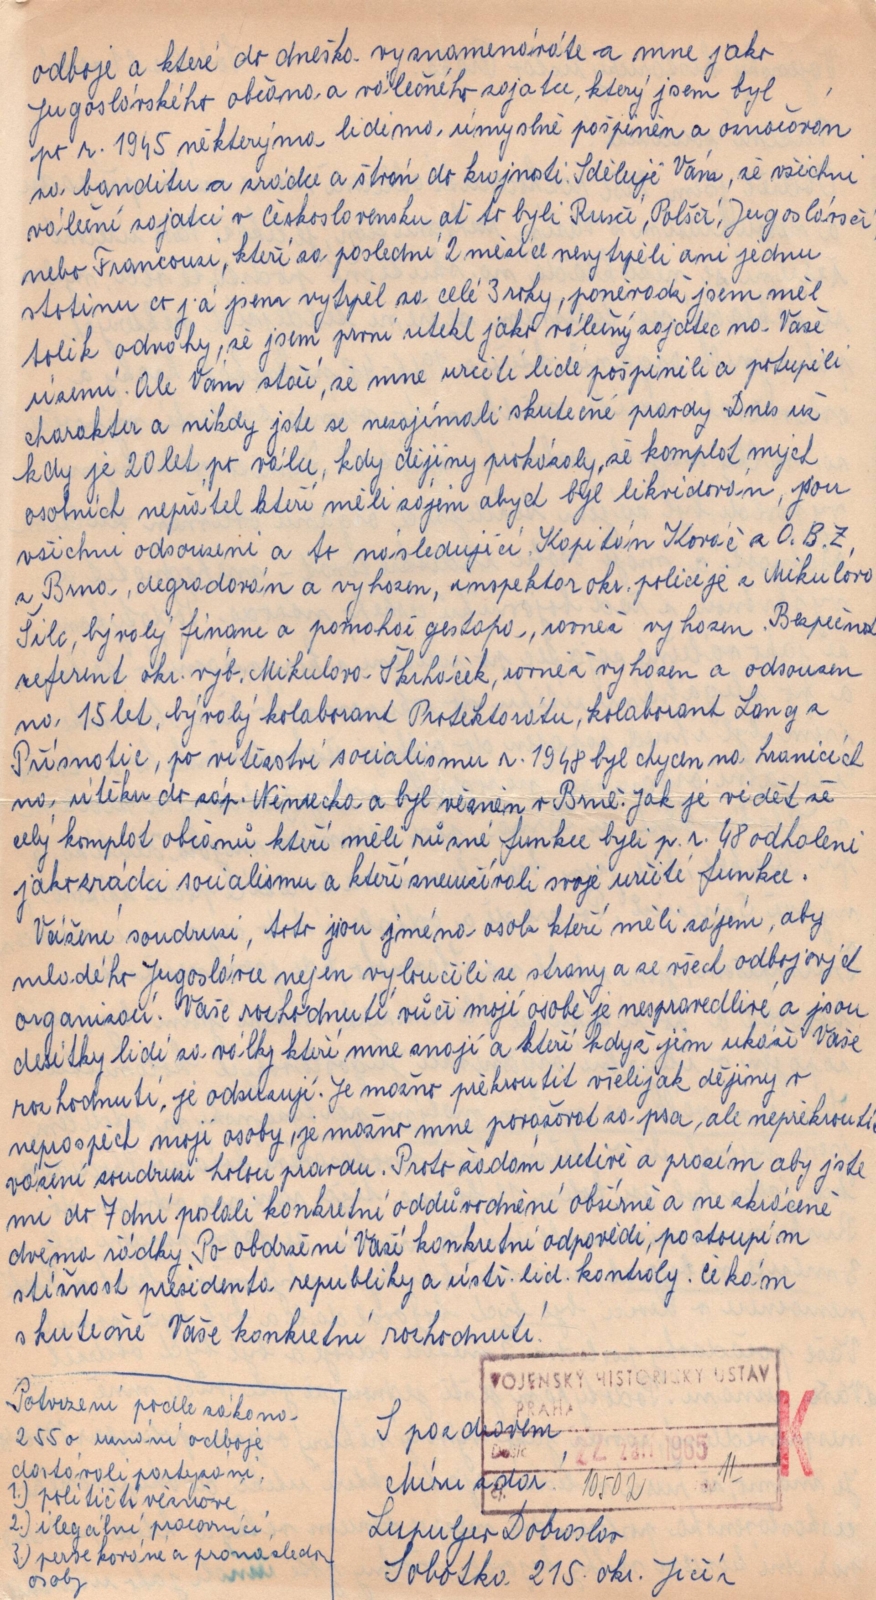 odboje a které do dneška vyznamenáváte a mne jako
Jugoslávského občana a válečného zajatce, který jsem byl
po r. 1945 některýma lidima úmyslně pošpiněn a označován
za banditu a zrádce a štván do krajnosti. Sděluji Vám, že všichni
váleční zajatci v Československu ať to byli Rusči, Polšči, Jugoslávsči,
nebo Francouzi, kteří za poslední 2 měsíce nevytrpěli ani jednu
stotinu co já jsem vytrpěl za celé 3 roky, poněvadž jsem měl
tolik odvahy, že jsem první utekl jako válečný zajatec na Vaše
území. Ale Vám stačí, že mne určití lidé pošpinili a potupěli
charakter a nikdy jste se nezajímali skutečné pravdy Dnes už
kdy je 20 let po válce, kdy dějiny prokázaly, že komplot mých
osobních nepřátel kteří měli zájem abych byl likvidován, jsou
všichni odsouzeni a to následující. Kapitán Kováč z O.B.Z.
z Brna, degradován a vyhozen, inspektor okr. policije z Mikulova
Šilc, bývalý financ a pomahač gestapa, rovněž vyhozen. Bezpečnost
referent okr. výb. Mikulova Škrháček, rovněž vyhozen a odsouzen
na 15 let, bývalý kolaborant Protektorátu, kolaborant Lang z
Přísnotic, po vítězství socialismu r. 1948 byl chycen na hranicích
na útěku do záp. Německa a byl vězněn v Brně. Jak je vidět že
celý komplot občanů kteří měli různé funkce byli p. r. 48 odhaleni
jako zrádci socialismu a kteří zneužívali svoje určité funkce.
Vážení soudruzi, toto jsou jména osob kteří měli zájem, aby
mladého Jugoslávce nejen vyloučili ze strany a ze všech odbojových
organizací. Vaše rozhodnutí vůči mojí osobě je nespravedlivé a jsou
desítky lidí za války kteří mne znají a kteří když jim ukáži Vaše
rozhodnutí, je odsuzují. Je možno překroutit všelijak dějiny v
neprospěch mojí osoby, je možno mne považovat za psa, ale nepřekroutíte
vážení soudruzi holou pravdu. Proto žádám uctivě a prosím aby jste
mi do 7 dní poslali konkretní oddůvodnění obšírně a ne zkráceně
dvěma řádky. Po obdržení Vaší konkretní odpovědi, postoupím
stížnost presidenta republiky a ústř. lid. kontroly. Čekám
skutečně Vaše konkretní rozhodnutí.
Potvrzení podle zákona
255 o uznání odboje
dostávali partyzáni,
1.) političtí věznově
2.) ilegální pracovníci,
3.) persekováné a pronásledov
osoby
VOJENSKÝ HISTORICKÝ ÚSTAV
PRAHA
Došlo 22. ZÁŘÍ 1965
Čj. 10502 11
K
S pozdravem
Míru zdar
Lupuljev Dobroslav
Sobotka 215. okr. Jičín